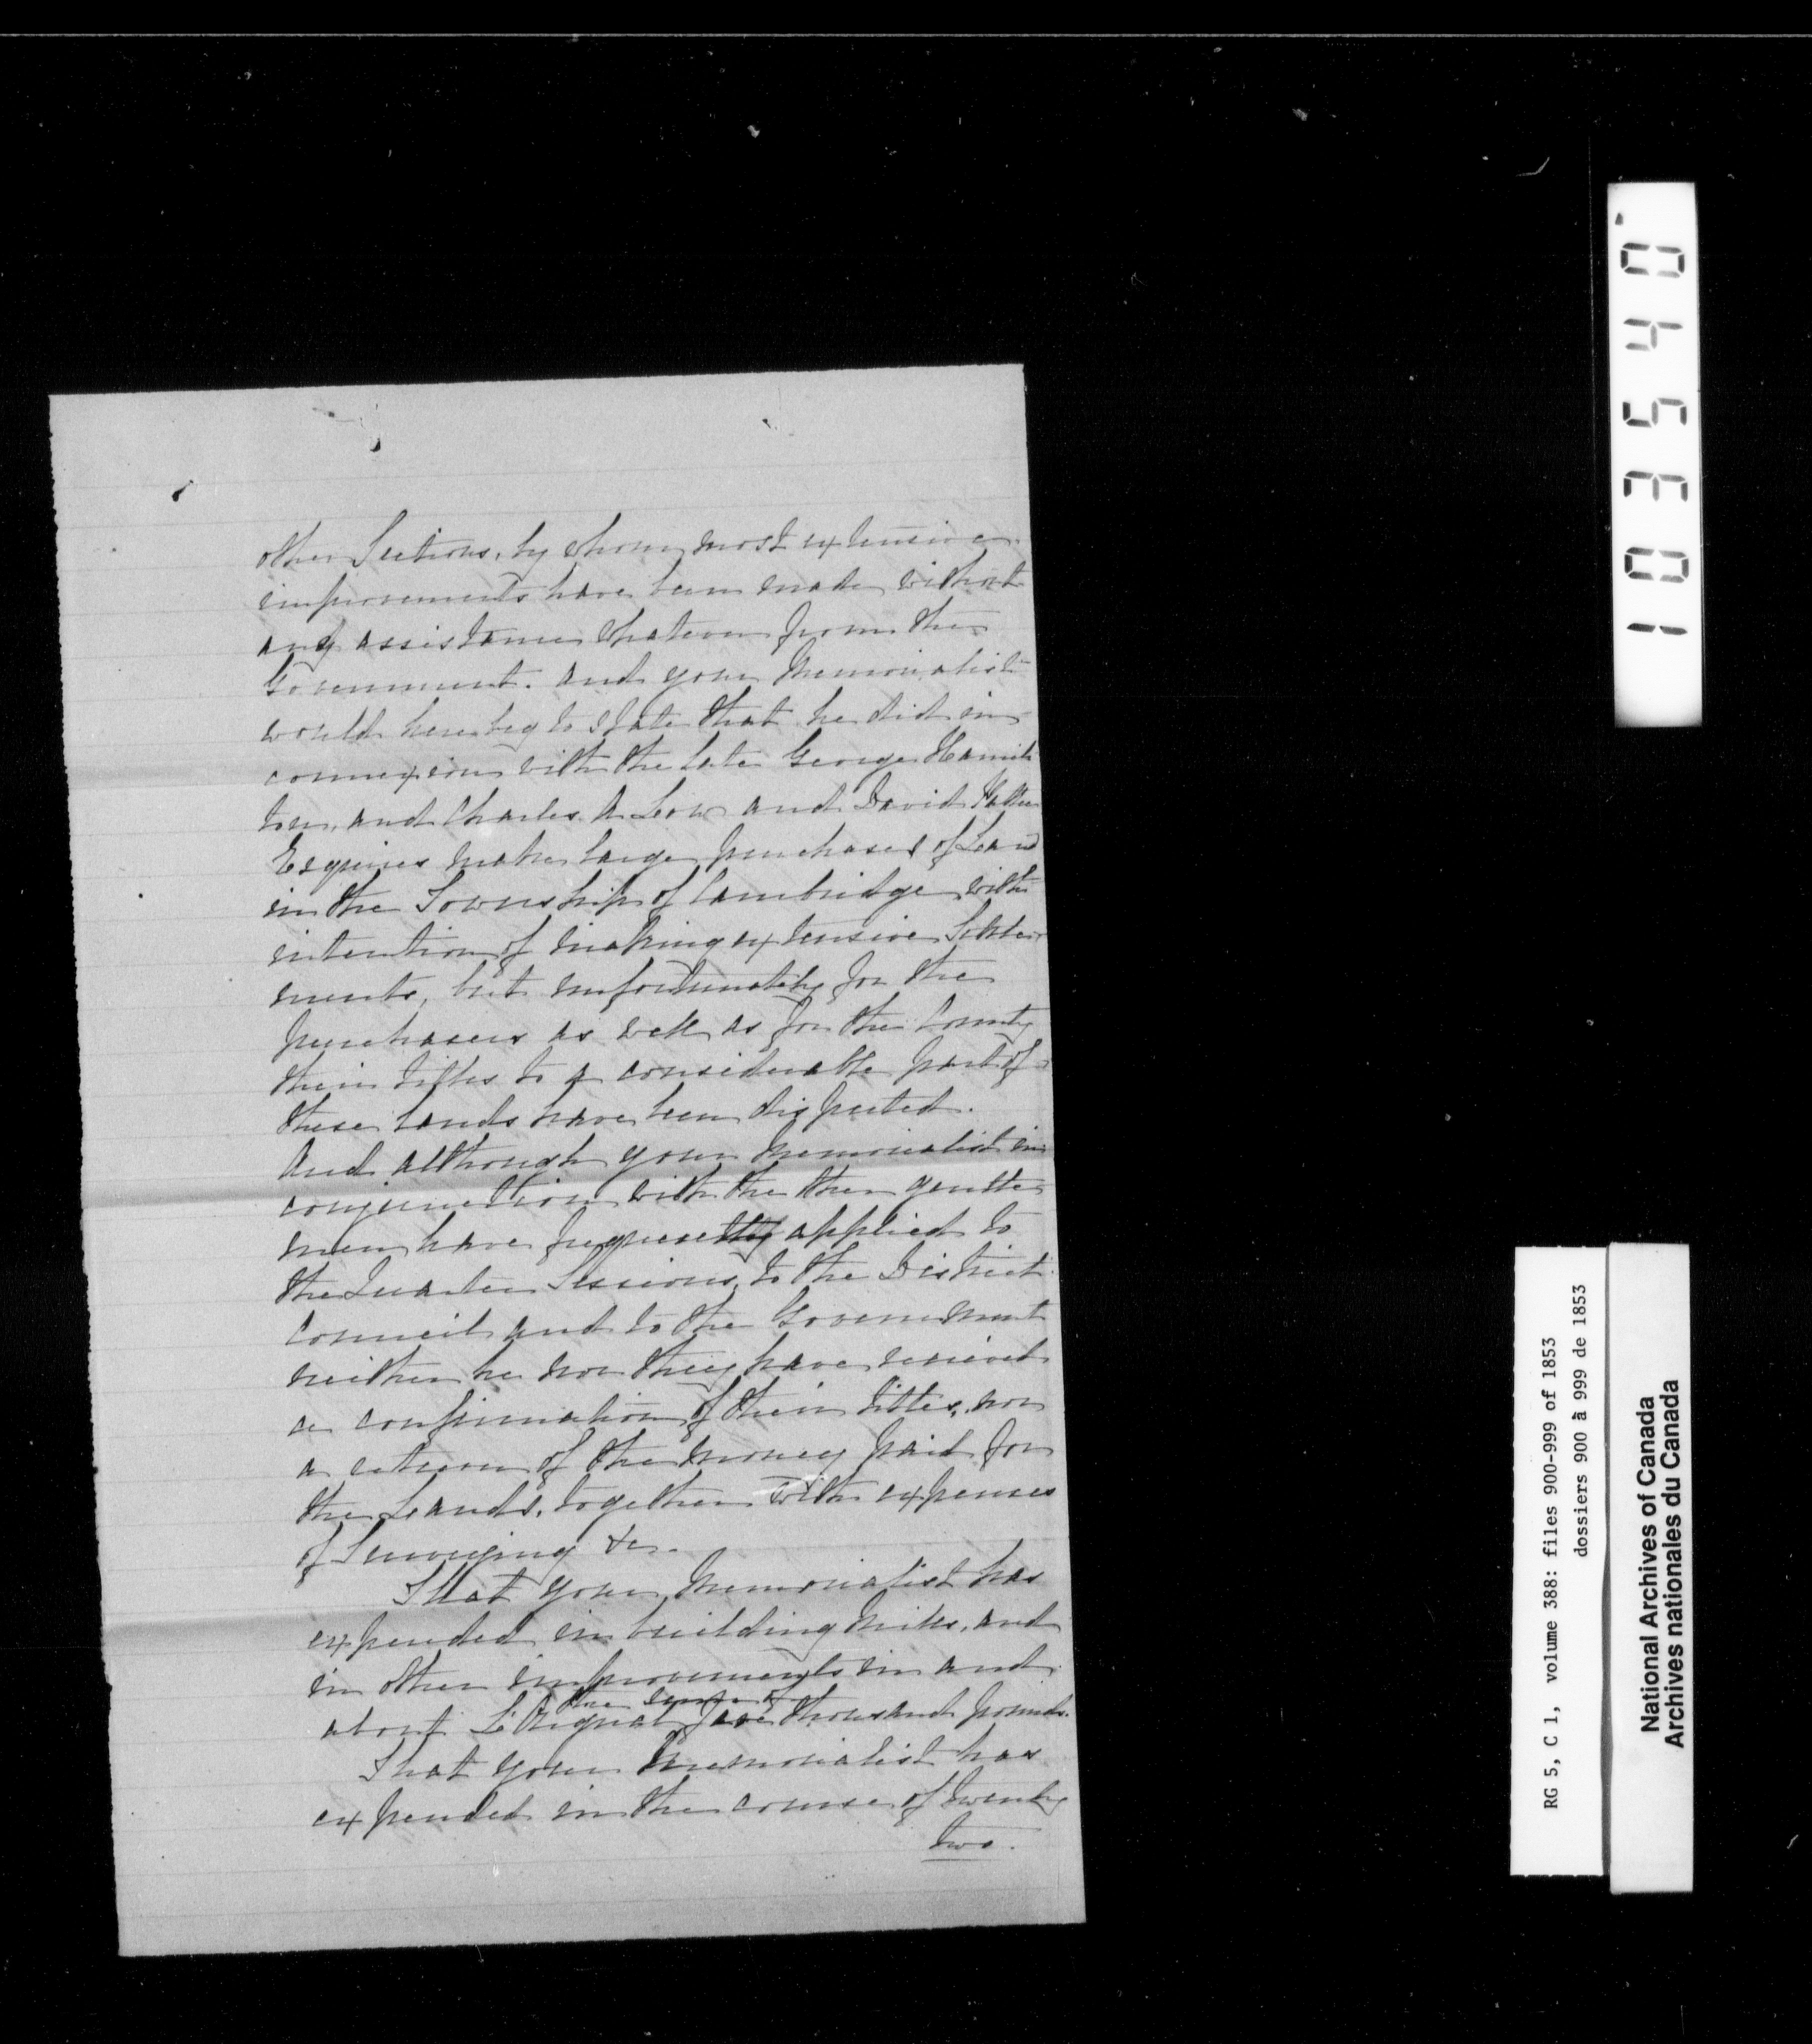 other Sections, by whom most extensive
improvements have been made without
any assistance whatever from the
Government. And your Memorialist
would here beg to state that he did in
connexion with the late George Hamil-
ton, and Charles A Low and David Pattee
Esquires make large purchases of Land
in the Township of Cambridge with
intention of making extensive Settle-
ments, but unfortunately for the
purchasers as well as for the County
their titles to a considerable part of
these lands have been disputed.
And although your Memorialist in
conjunction with the other gentle-
men have frequently applied to
the Quarter Sessions, to the District
Council and to the Government
neither he nor they have recieved
a confirmation of their titles, nor
a return of the money paid for
the Lands, together with expenses
of Surveying &c.
That your Memorialist has
expended in building Mills, and
in other improvements in and
about L'Orignal the sum of five thousand pounds.
That your Memorialist has
expended in the course of twenty
two.
103540
RG 5, C 1, volume 388: files 900-999 of 1853
dossiers 900 à 999 de 1853
National Archives of Canada
Archives nationales du Canada